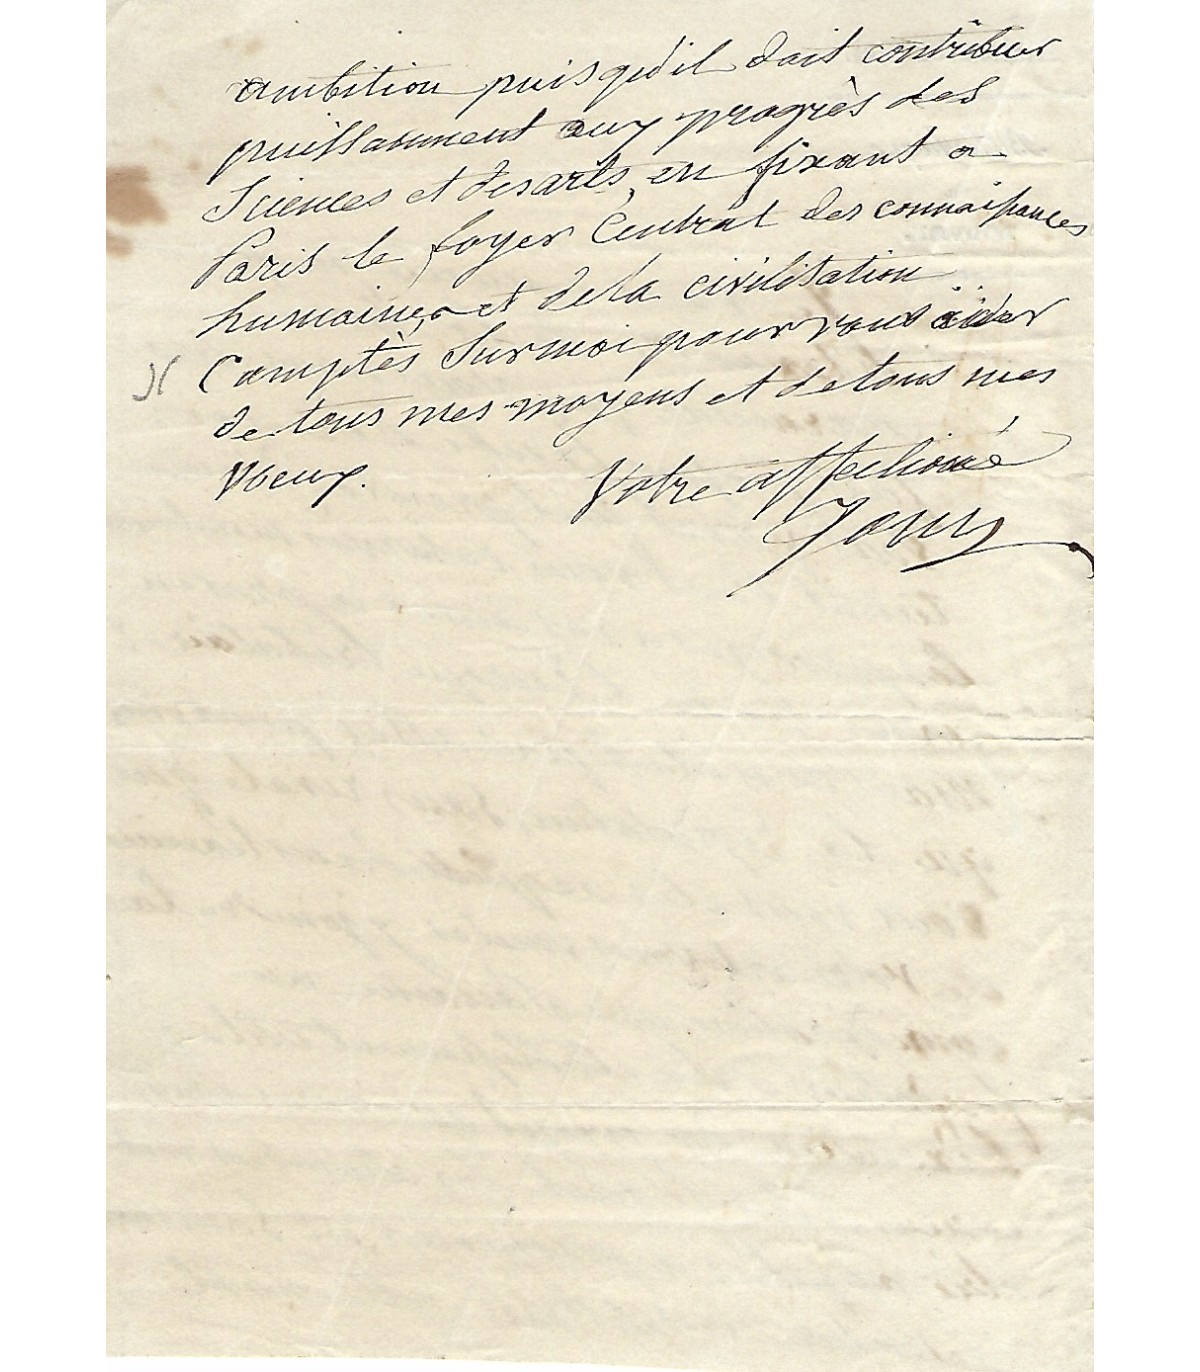 ambition puis qu'il doit contribuer
puissamment aux progrès des
Sciences et des arts, en fixant a
Paris le foyer Central des connaissances
humaines et de la civilisation
Comptès sur moi pour vous aider
de tous mes moyens et de tous mes
voeux.
Votre affectionné
Jouy